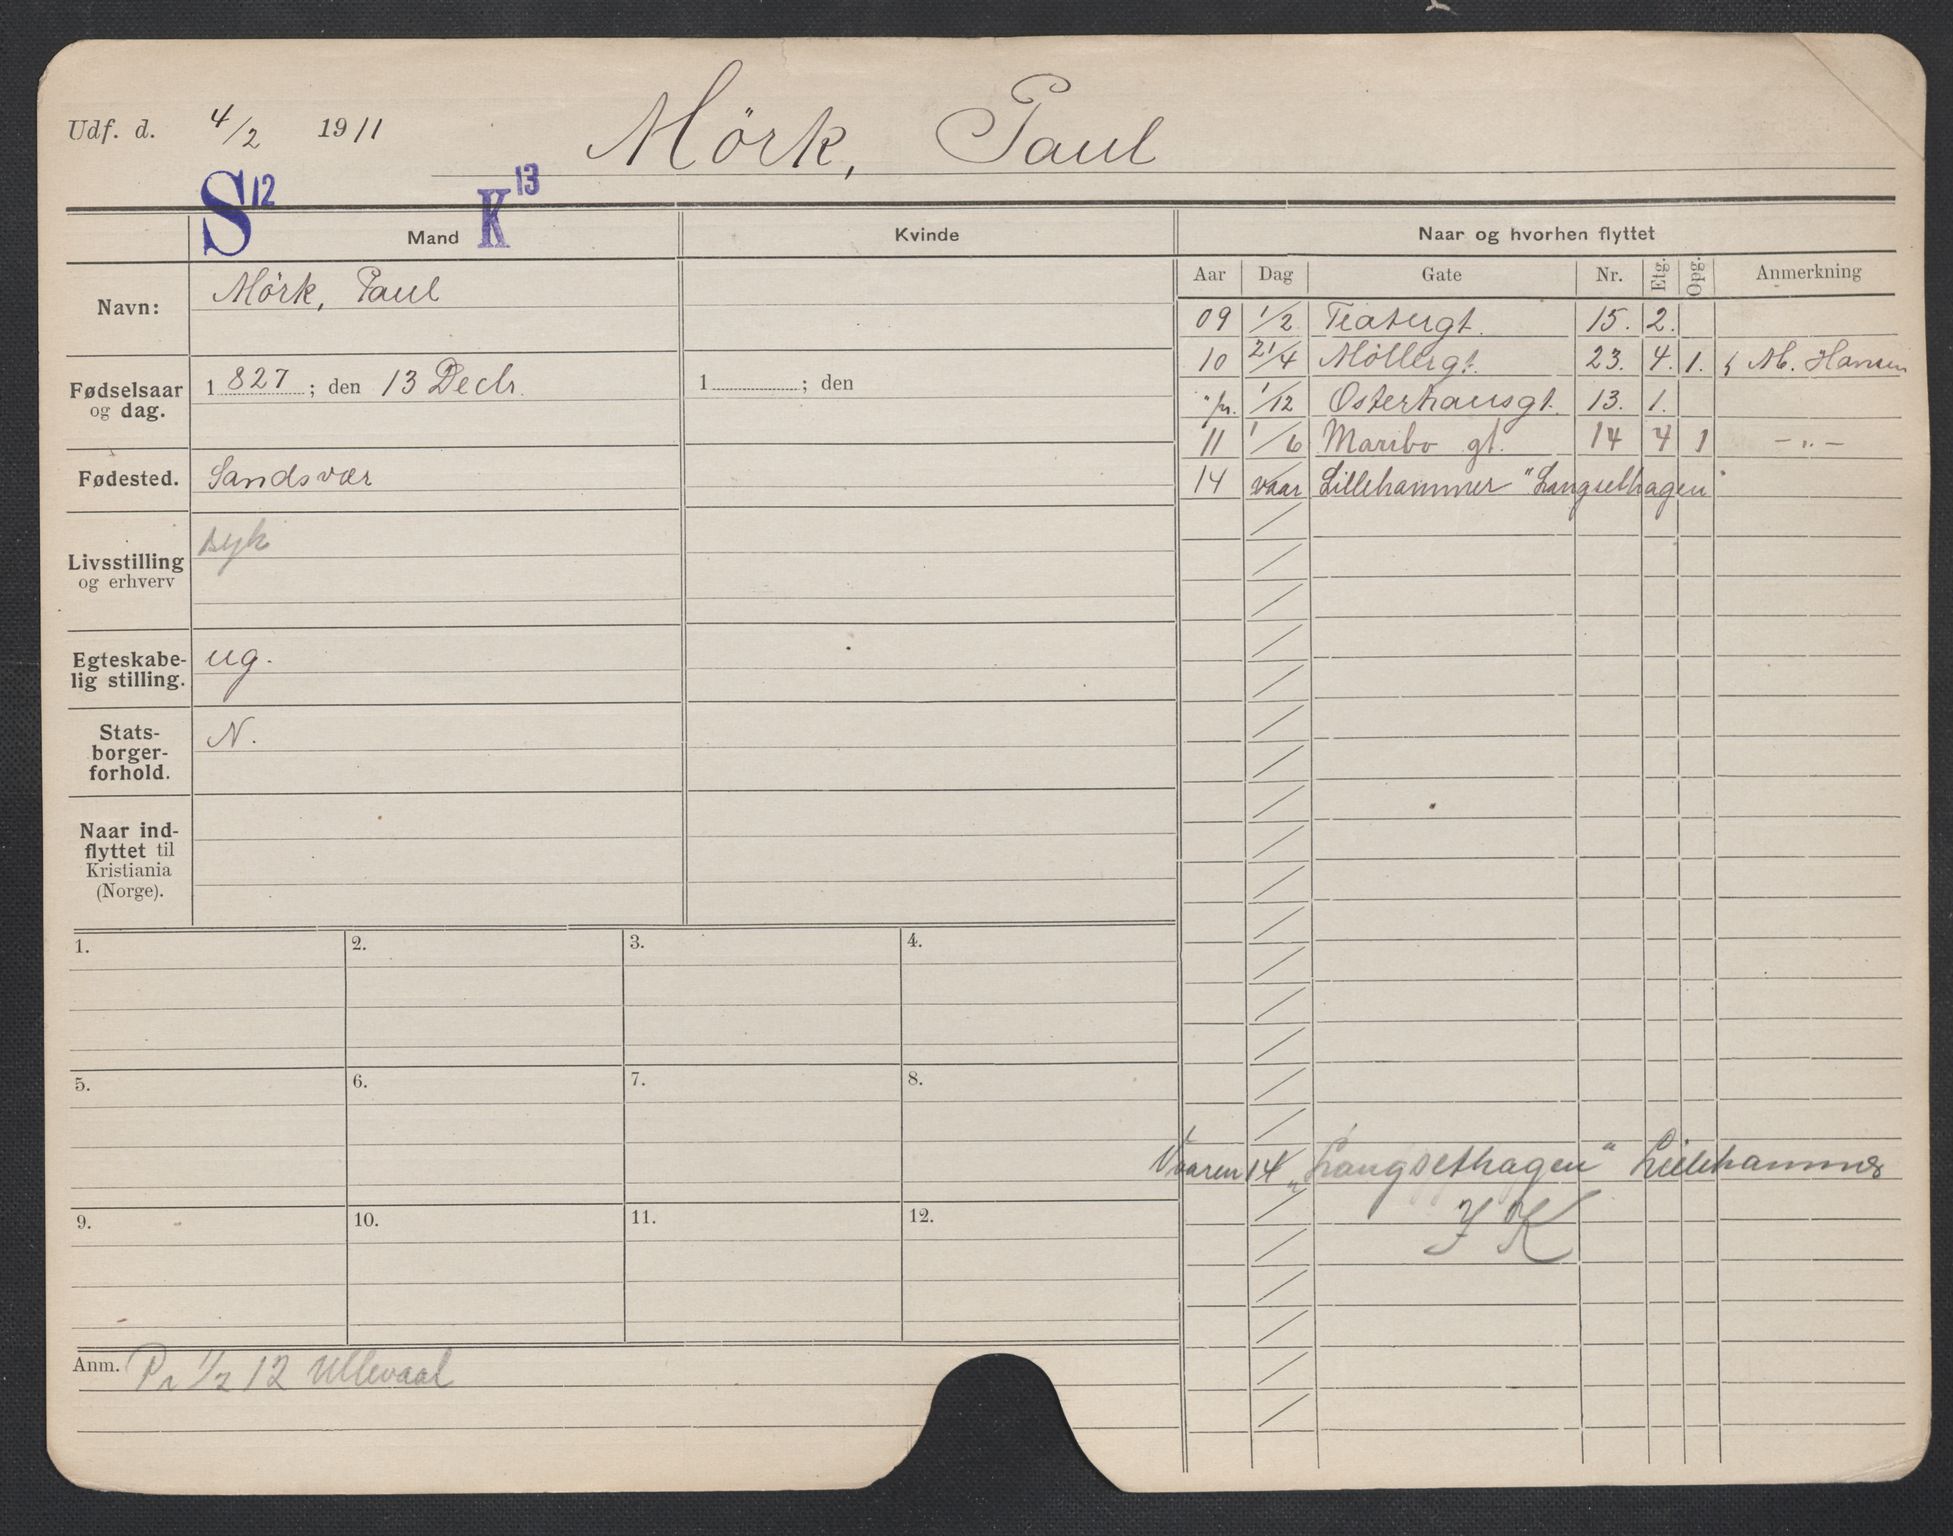 Udf. d. 4/2 1911 Mörk, Paul
S12 K13
Mand Kvinde Naar og hvorhen flyttet
Aar Dag Gate Nr. Etg. Opg. Anmerkning
Navn: Mörk, Paul
Fødselsaar og dag. 1827; den 13 Decbr. 1 ; den
Fødested. Sandsvær
Livsstilling og erhverv syk
Egteskabe-
lig stilling. ug.
Stats-
borger-
forhold. N.
Naar ind-
flyttet til
Kristiania
(Norge).
09 1/2 Teatergt. 15. 2.
10 21/4 Möllergt. 23. 4. 1. M. Hansen
" pr. 1/12 Osterhausgt. 13. 1.
11 1/6 Maribo gt. 14 4 1 -"-
14 vaar Lillehammer "Langsethagen"
Vaaren 14 "Langsethagen" Lillehammer
1. 2. 3. 4.
5. 6. 7. 8.
9. 10. 11. 12.
Anm. Pr 1/2 12 Ullevaal